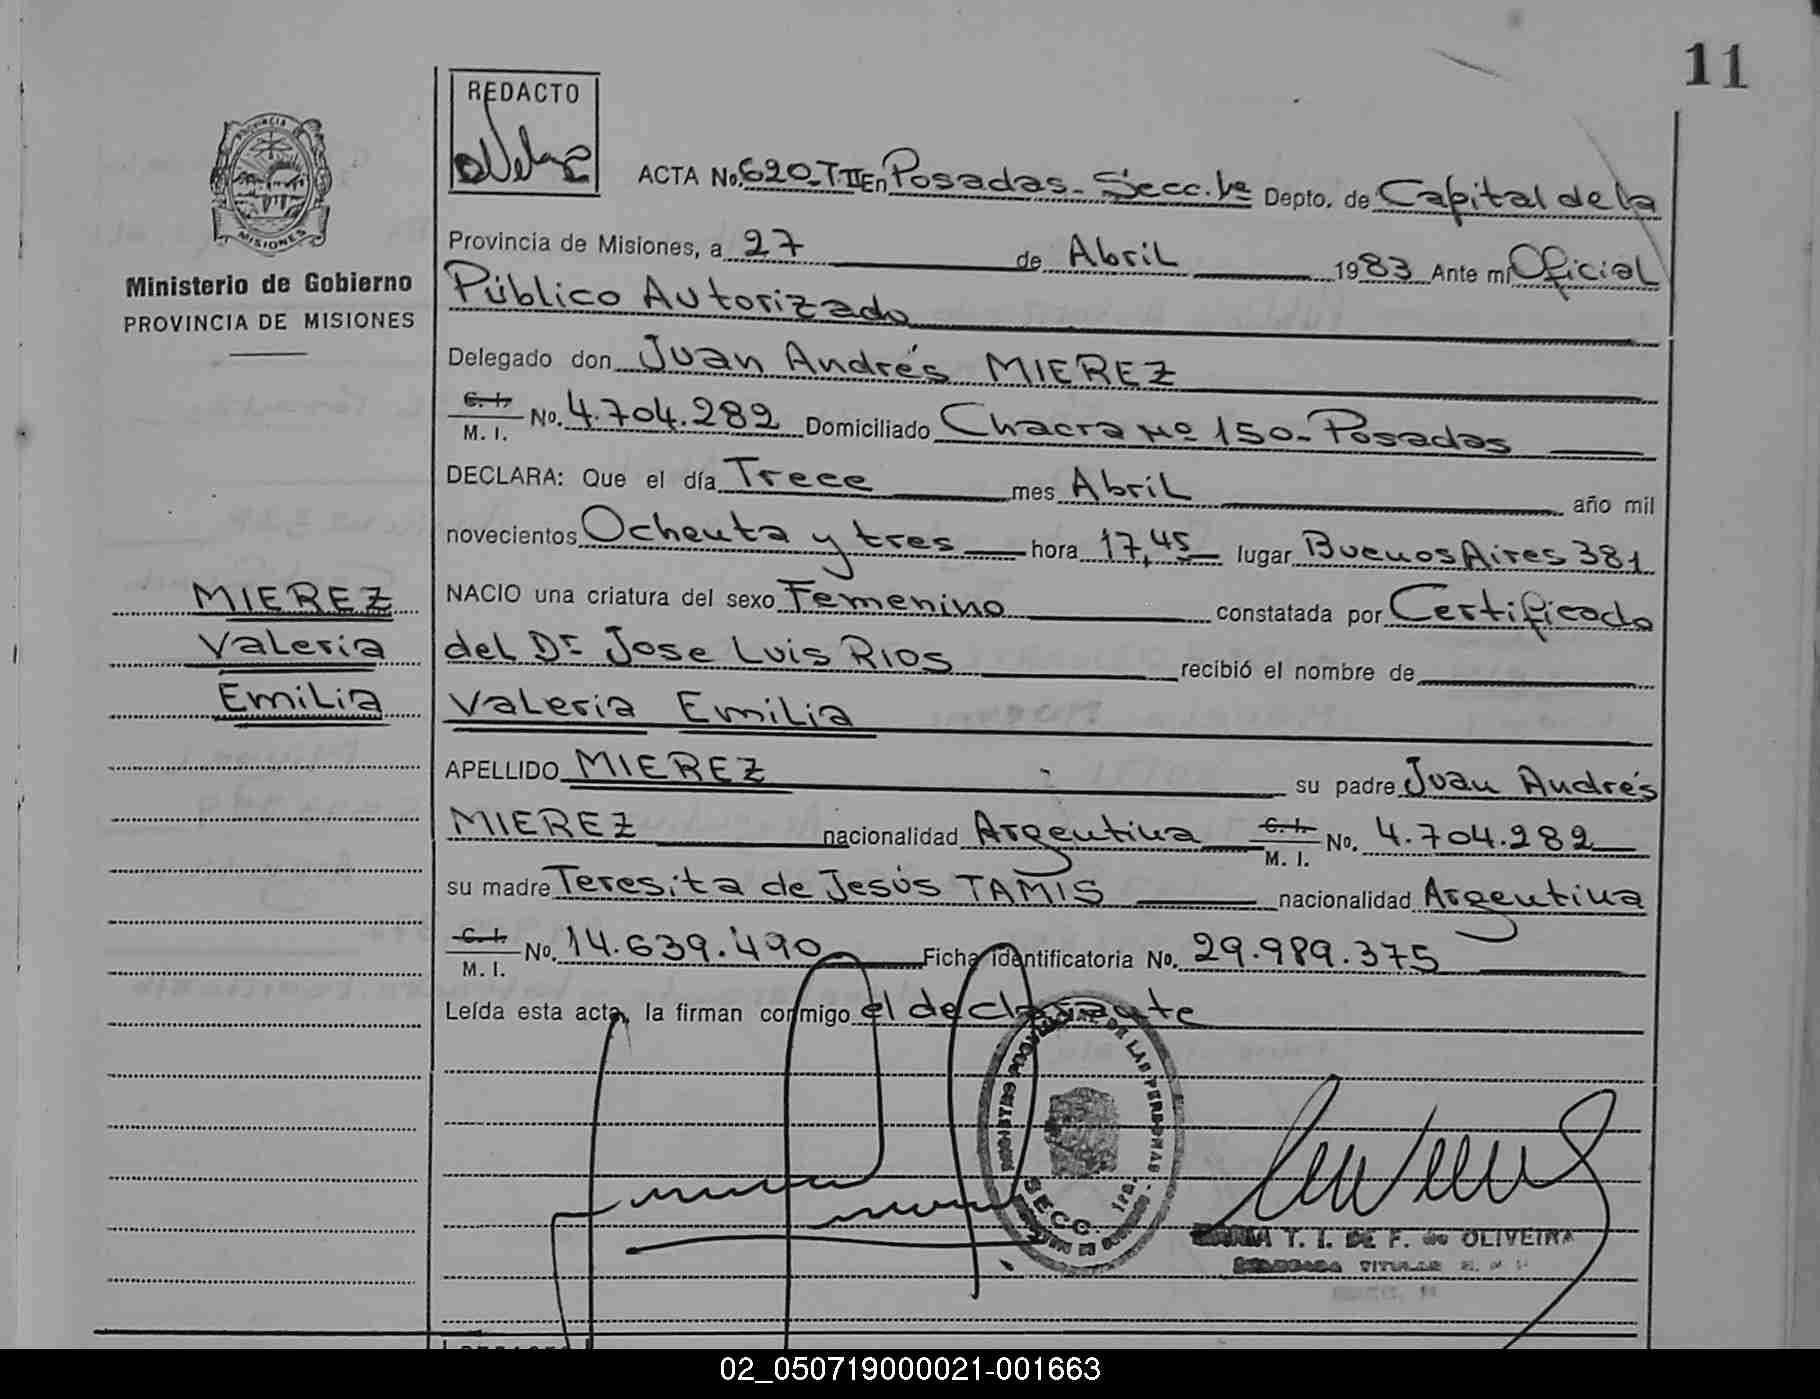 11
REDACTO
PROVINCIA DE
MISIONES
Ministerio de Gobierno
PROVINCIA DE MISIONES
ACTA No. 620-TII En Posadas- Secc. 1ª Depto. de Capital de la
Provincia de Misiones, a 27 de Abril 1983 Ante mi Oficial
Público Autorizado
Delegado don Juan Andrés MIEREZ
C. I. M. I. No. 4.704.282 Domiciliado Chacra Nº 150- Posadas
DECLARA: Que el día Trece mes Abril año mil
novecientos Ochenta y tres hora 17,45 lugar Buenos Aires 381
NACIO una criatura del sexo Femenino constatada por Certificado
del Dr Jose Luis RIOS recibió el nombre de
Valeria Emilia
APELLIDO MIEREZ su padre Juan Andrés
MIEREZ nacionalidad Argentina C. I. M. I. No. 4.704.282
su madre Teresita de Jesús TAMIS nacionalidad Argentina
C. I. M. I. No. 14.639.490 Ficha identificatoria No. 29.989.375
Leída esta acta, la firman conmigo el declarante
MIEREZ
Valeria
Emilia
REGISTRO PROVINCIAL DE LAS PERSONAS
SECC. 1ra.
MARIA T. I. DE F. de OLIVEIRA
TITULAR
02_050719000021-001663